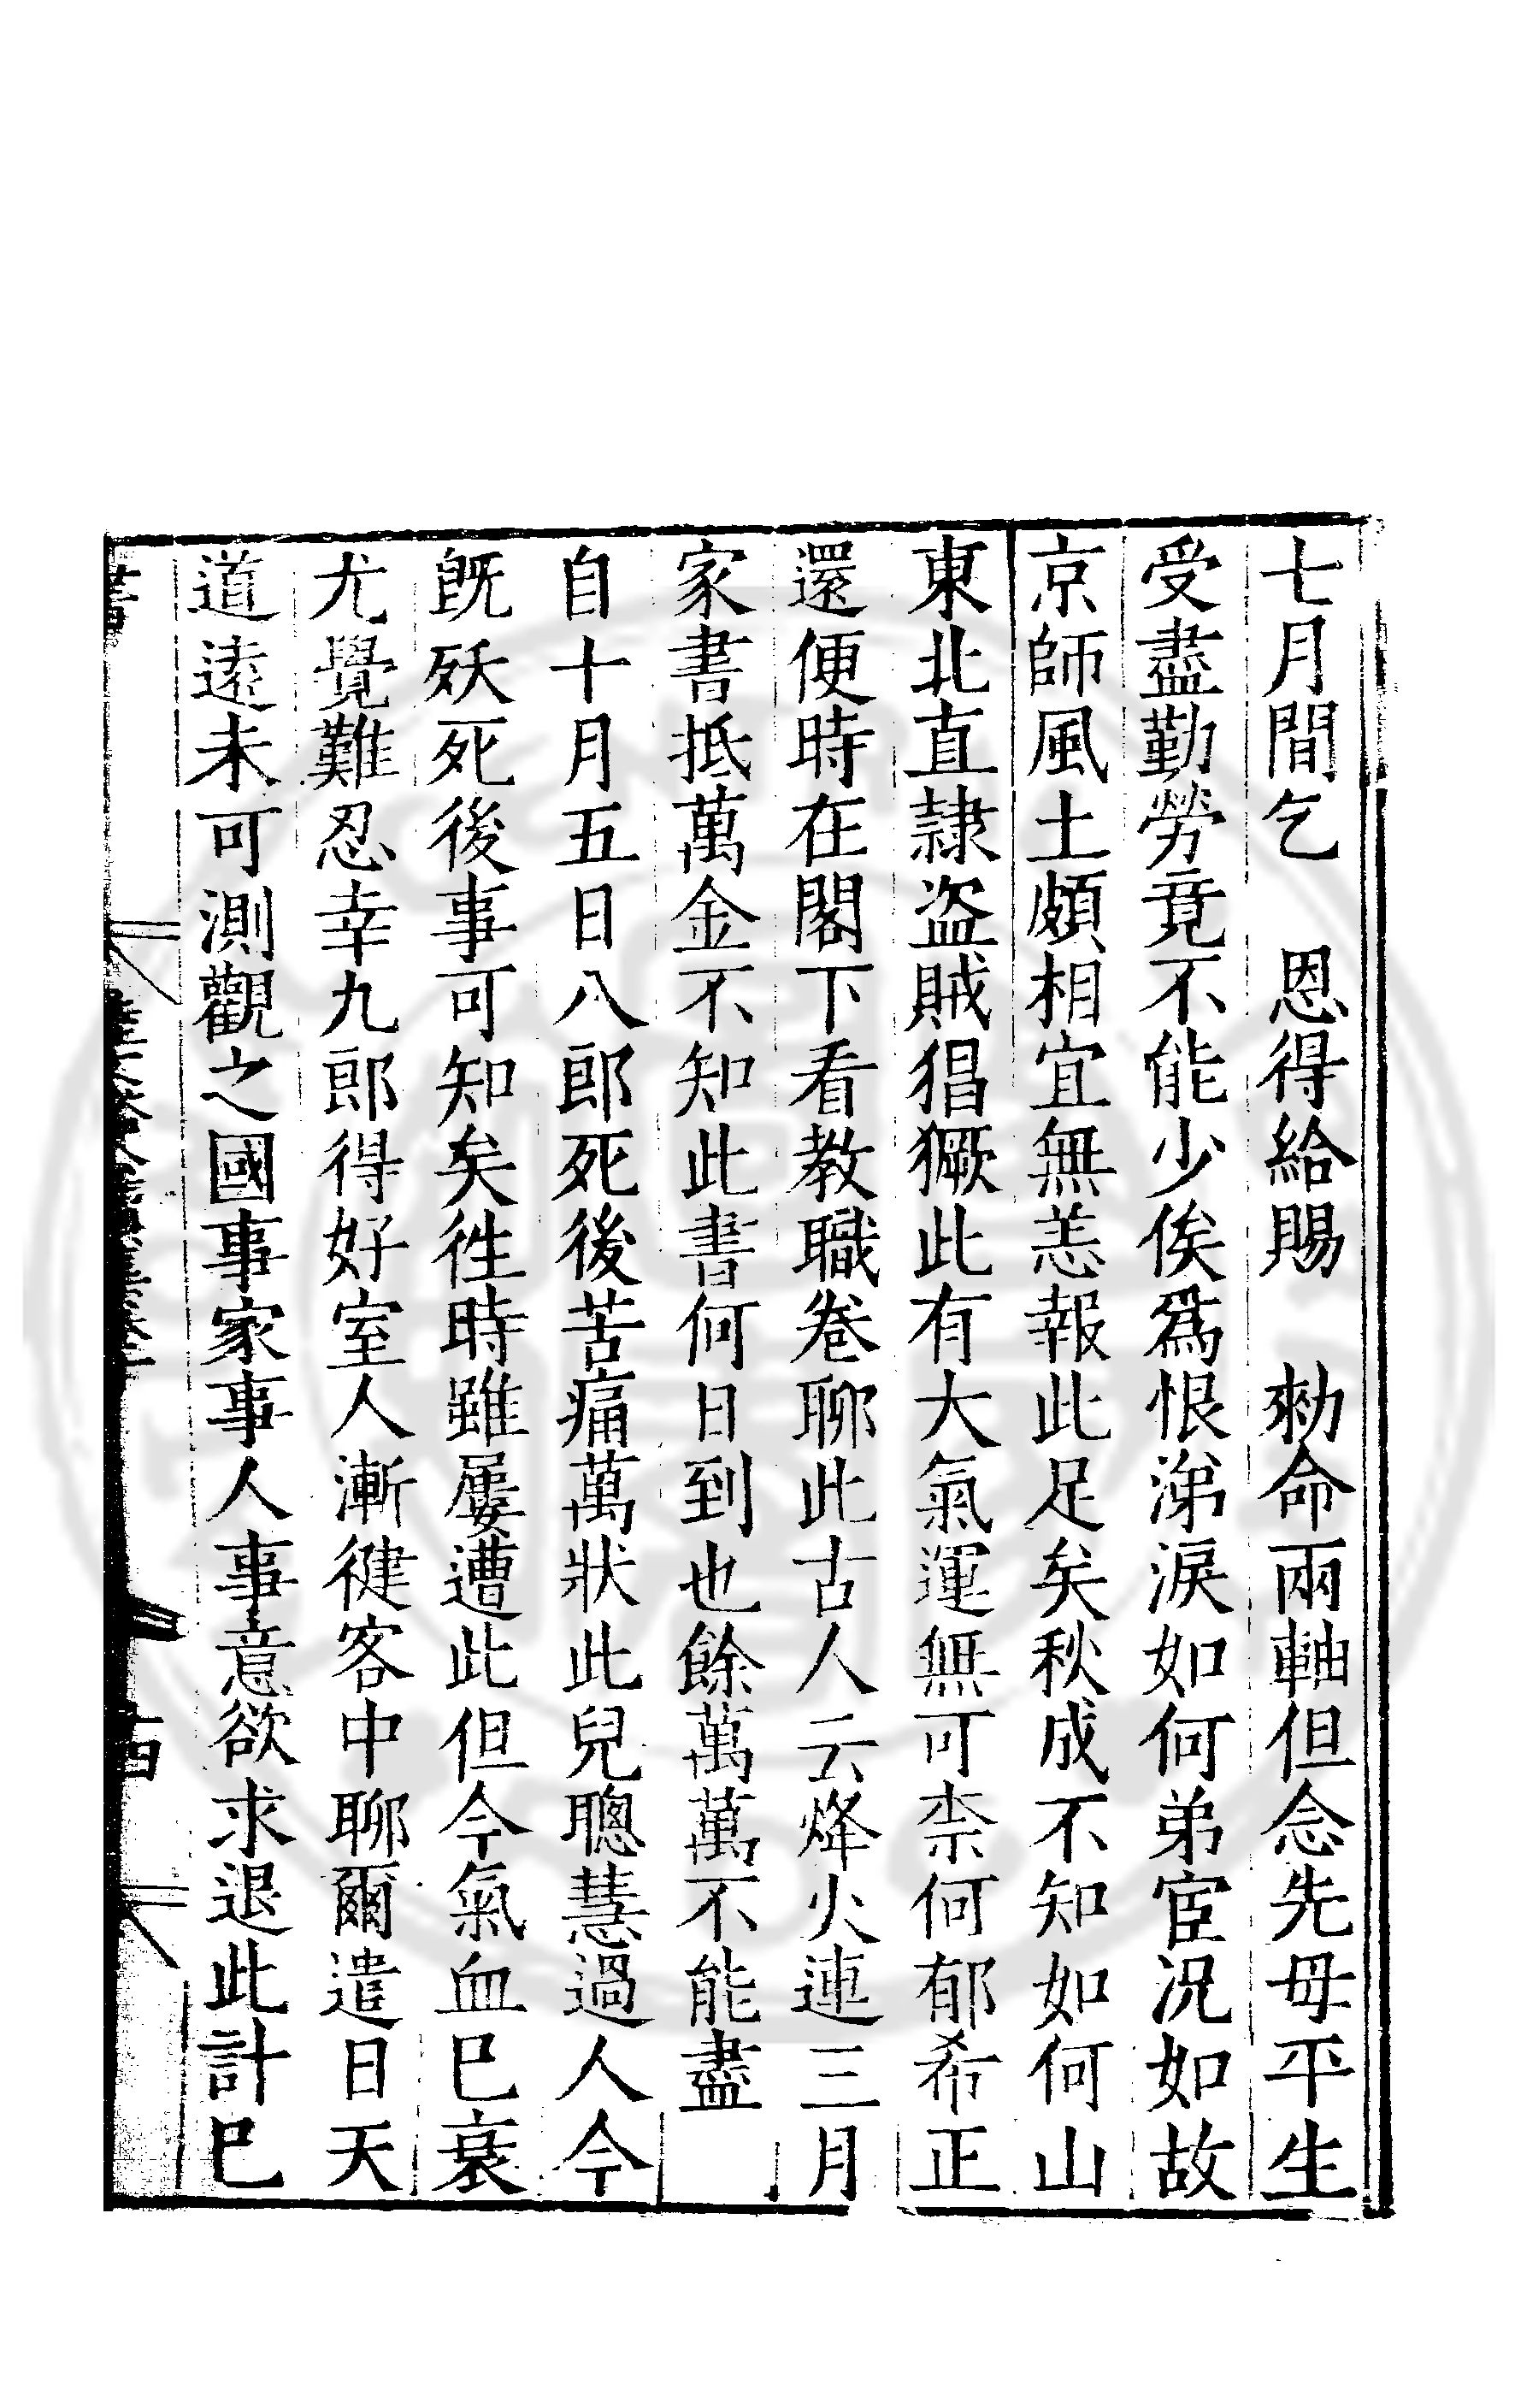 七月間乞　恩得給賜　勑命兩軸但念先母平生
受盡勤勞竟不能少俟爲恨涕淚如何弟宦況如故
京師風土頗相宜無恙報此足矣秋成不知如何山
東北直隷盜賊猖獗此有大氣運無可柰何郁希正
還便時在閣下看教職卷聊此古人云烽火連三月
家書抵萬金不知此書何日到也餘萬萬不能盡
自十月五日八郎死後苦痛萬狀此兒聰慧過人今
旣殀死後事可知矣徃時雖屢遭此但今氣血巳衰
尤覺難忍幸九郎得好室人漸徤客中聊爾遣日天
道遠未可測觀之國事家事人事意欲求退此計巳